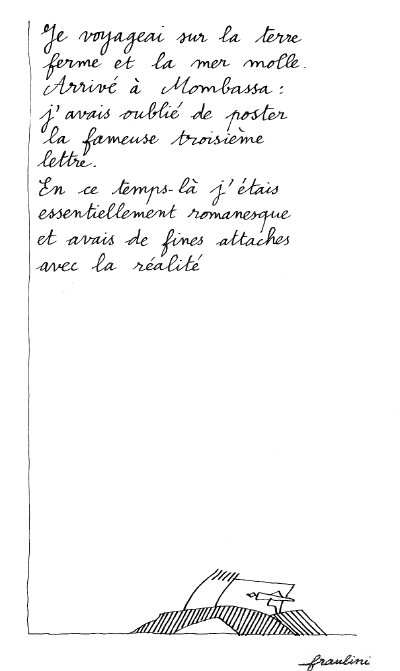 Je voyageai sur la terre
ferme et la mer molle.
Arrivé à Mombassa :
j'avais oublié de poster
la fameuse troisième
lettre.
En ce temps-là j'étais
essentiellement romanesque
et avais de fines attaches
avec la réalité
fraulini